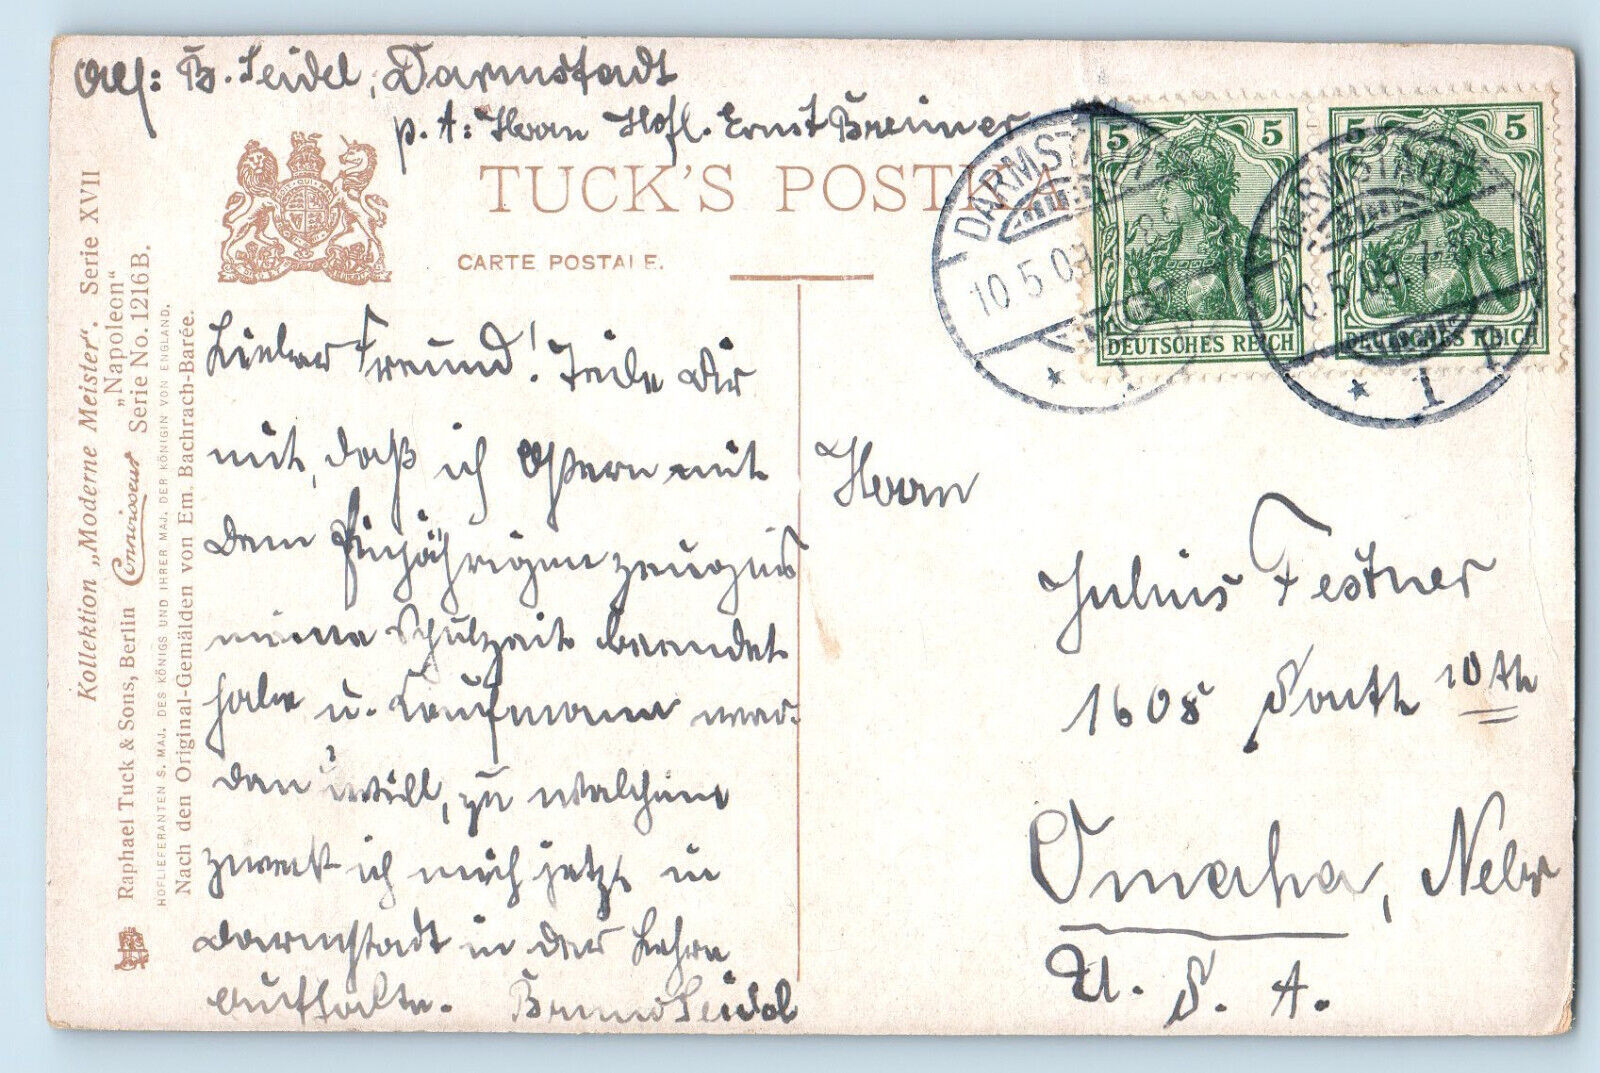 Abs: B. Seidel, Darmstadt
p. A: Herrn Hofl. Ernst Breimer
TUCK'S POSTKA
CARTE POSTALE.
Kollektion „Moderne Meister“. Serie XVII
„Napoleon“
Raphael Tuck & Sons, Berlin Connoisseur Serie No. 1216B.
HOFLIEFERANTEN S. MAJ. DES KÖNIGS UND IHRER MAJ. DER KÖNIGIN VON ENGLAND.
Nach den Original-Gemälden von Em. Bachrach-Barée.
Lieber Freund! Teile Dir
mit, daß ich Ostern mit
dem Einjährigen zeugnis
meine Schulzeit beendet
habe u. Kaufmann wer-
den will, zu welchem
zweck ich mich jetzt in
Darmstadt in der Lehre
aufhalte. Bruno Seidel
DARMSTADT
10.5.09.
* 1
DARMSTADT
10.5.09. 7-8
* 1
5 5
DEUTSCHES REICH
5 5
DEUTSCHES REICH
Herrn
Julius Festner
1608 South 10th
Omaha, Nebr
U. S. A.